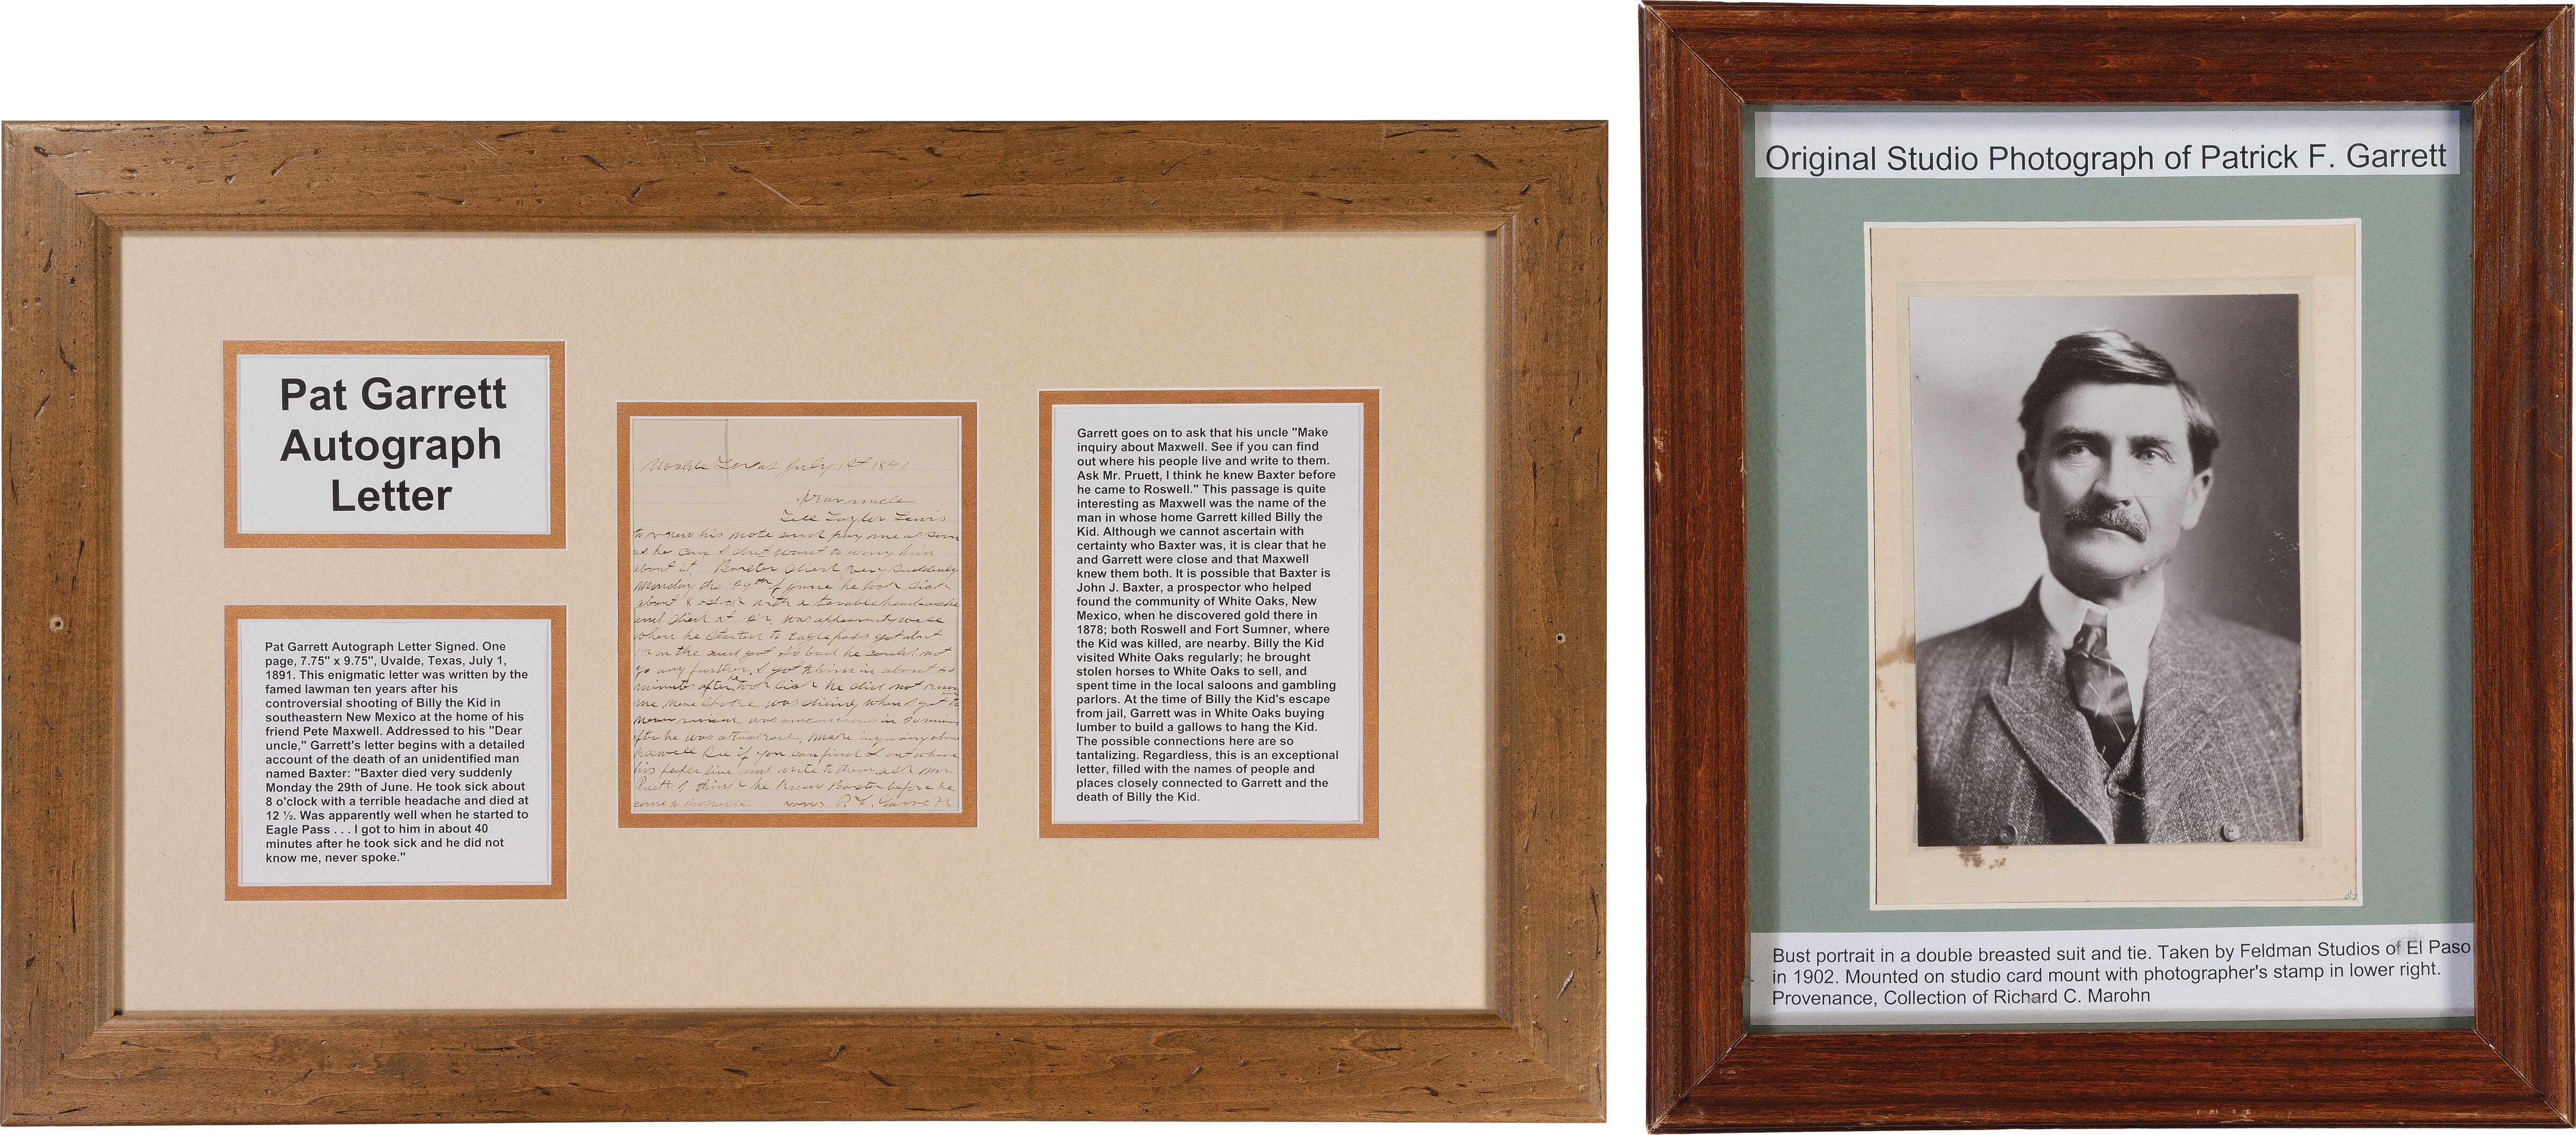 Pat Garrett
Autograph
Letter
Pat Garrett Autograph Letter Signed. One
page, 7.75" x 9.75", Uvalde, Texas, July 1,
1891. This enigmatic letter was written by the
famed lawman ten years after his
controversial shooting of Billy the Kid in
southeastern New Mexico at the home of his
friend Pete Maxwell. Addressed to his "Dear
uncle," Garrett's letter begins with a detailed
account of the death of an unidentified man
named Baxter: "Baxter died very suddenly
Monday the 29th of June. He took sick about
8 o'clock with a terrible headache and died at
12 ½. Was apparently well when he started to
Eagle Pass . . . I got to him in about 40
minutes after he took sick and he did not
know me, never spoke."
Uvalde Texas July 1st 1891
Dear uncle
Tell Taylor Lewis
to renew his note and pay me as soon
as he can I dont want to worry him
about it. Baxter died very suddenly
Monday the 29th of June he took sick
about 8 oclock with a terrible headache
and died at 12 ½ was apparently well
when he started to Eagle pass got about
on the and got so bad he could not
go any further, I got to him in about 40
minutes after he took sick he did not know
me never spoke was dieing when I got to
was unconscious in
after he was attacked, make inquiry about
Maxwell See if you can find out where
his people live and write to them, ask Mr
Pruett I think he knew Baxter before he
came to Roswell yours P. F. Garrett
Garrett goes on to ask that his uncle "Make
inquiry about Maxwell. See if you can find
out where his people live and write to them.
Ask Mr. Pruett, I think he knew Baxter before
he came to Roswell." This passage is quite
interesting as Maxwell was the name of the
man in whose home Garrett killed Billy the
Kid. Although we cannot ascertain with
certainty who Baxter was, it is clear that he
and Garrett were close and that Maxwell
knew them both. It is possible that Baxter is
John J. Baxter, a prospector who helped
found the community of White Oaks, New
Mexico, when he discovered gold there in
1878; both Roswell and Fort Sumner, where
the Kid was killed, are nearby. Billy the Kid
visited White Oaks regularly; he brought
stolen horses to White Oaks to sell, and
spent time in the local saloons and gambling
parlors. At the time of Billy the Kid's escape
from jail, Garrett was in White Oaks buying
lumber to build a gallows to hang the Kid.
The possible connections here are so
tantalizing. Regardless, this is an exceptional
letter, filled with the names of people and
places closely connected to Garrett and the
death of Billy the Kid.
Original Studio Photograph of Patrick F. Garrett
Bust portrait in a double breasted suit and tie. Taken by Feldman Studios of El Paso
in 1902. Mounted on studio card mount with photographer's stamp in lower right.
Provenance, Collection of Richard C. Marohn